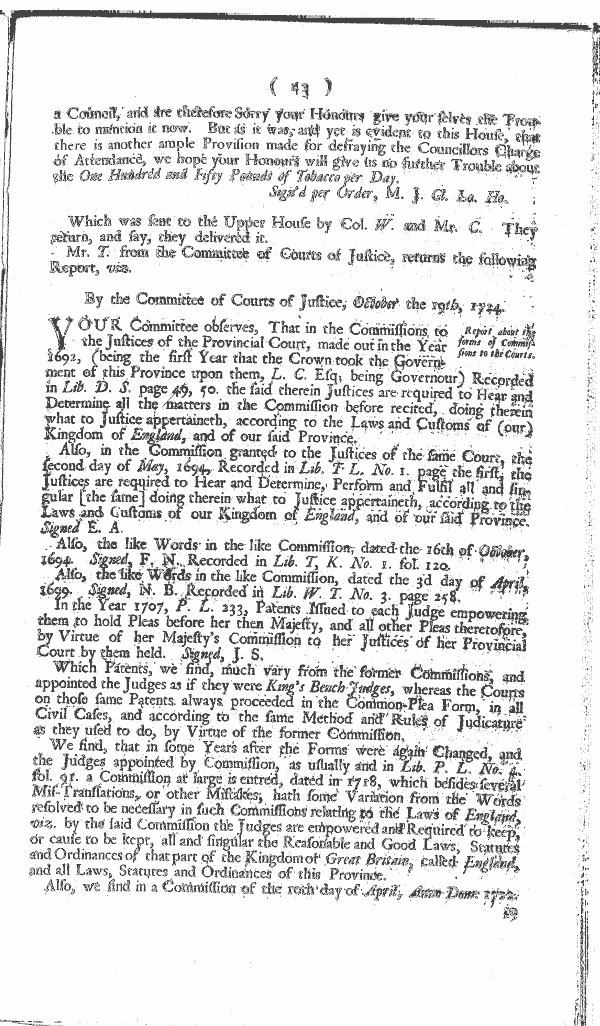 ( 43 )
a Council, and are therefore Sorry your Honours give your selves the Trou-
ble to mention it now. But as it was, and yet is evident to this House, that
there is another ample Provision made for defraying the Councillors Charge
of Attendance, we hope your Honours will give us no further Trouble about
the One Hundred and Fifty Pounds of Tobacco per Day.
Sign'd per Order, M. J. Cl. Lo. Ho.
Which was sent to the Upper House by Col. W. and Mr. C. They
return, and say, they delivered it.
Mr. T. from the Committee of Courts of Justice, returns the following
Report, viz.
By the Committee of Courts of Justice, October the 19th, 1724.
YOUR Committee observes, That in the Commissions to
the Justices of the Provincial Court, made out in the Year
1692, (being the first Year that the Crown took the Govern-
Report about the
forms of Commis-
sions to the Courts.
ment of this Province upon them, L. C. Esq; being Governour) Recorded
in Lib. D. S. page 49, 50. the said therein Justices are required to Hear and
Determine all the matters in the Commission before recited, doing therein
what to Justice appertaineth, according to the Laws and Customs of (our)
Kingdom of England, and of our said Province.
Also, in the Commission granted to the Justices of the same Court, the
second day of May, 1694, Recorded in Lib. T. L. No. 1. page the first, the
Justices are required to Hear and Determine, Perform and Fulfil all and sin-
gular [the same] doing therein what to Justice appertaineth, according to the
Laws and Customs of our Kingdom of England, and of our said Province.
Signed E. A.
Also, the like Words in the like Commission, dated the 16th of October,
1694. Signed, F. N. Recorded in Lib. T. K. No. 1. fol. 120.
Also, the like Words in the like Commission, dated the 3d day of April,
1699. Signed, N. B. Recorded in Lib. W. T. No. 3. page 258.
In the Year 1707, P. L. 233, Patents Issued to each Judge empowering
them to hold Pleas before her then Majesty, and all other Pleas theretofore,
by Virtue of her Majesty's Commission to her Justices of her Provincial
Court by them held. Signed, J. S.
Which Patents, we find, much vary from the former Commissions, and
appointed the Judges as if they were King's Bench Judges, whereas the Courts
on those same Patents always proceeded in the Common-Plea Form, in all
Civil Cases, and according to the same Method and Rules of Judicature
as they used to do, by Virtue of the former Commission.
We find, that in some Years after the Forms were again Changed, and
the Judges appointed by Commission, as usually and in Lib. P. L. No. 4.
fol. 91. a Commission at large is entred, dated in 1718, which besides several
Mis-Translations, or other Mistakes, hath some Variation from the Words
resolved to be necessary in such Commissions relating to the Laws of England,
viz. by the said Commission the Judges are empowered and Required to keep,
or cause to be kept, all and singular the Reasonable and Good Laws, Statutes
and Ordinances of that part of the Kingdom of Great Britain, called England,
and all Laws, Statutes and Ordinances of this Province.
Also, we find in a Commission of the 10th day of April, Anno Dom. 1722.